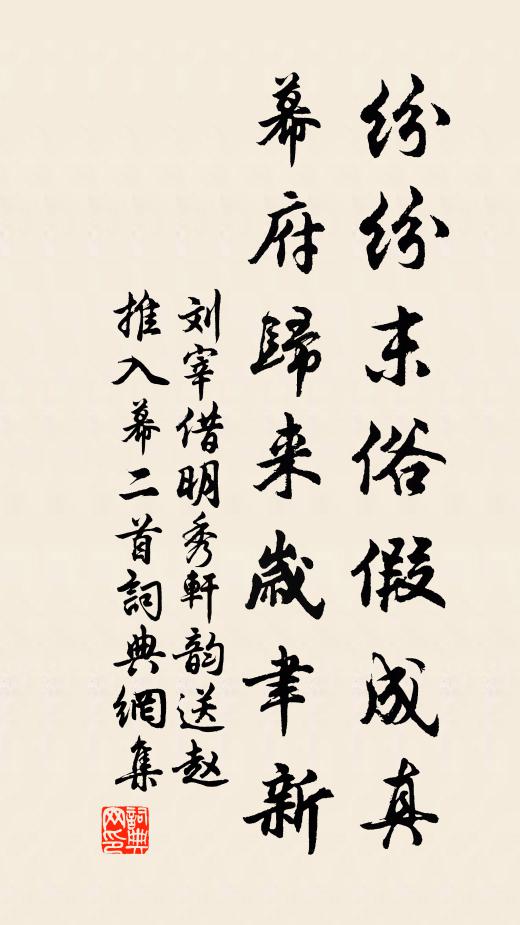 纷纷末俗假成真
幕府歸来歲聿新
刘宰借明秀軒韵送赵
推入幕二首詞典網集
詞典
网印